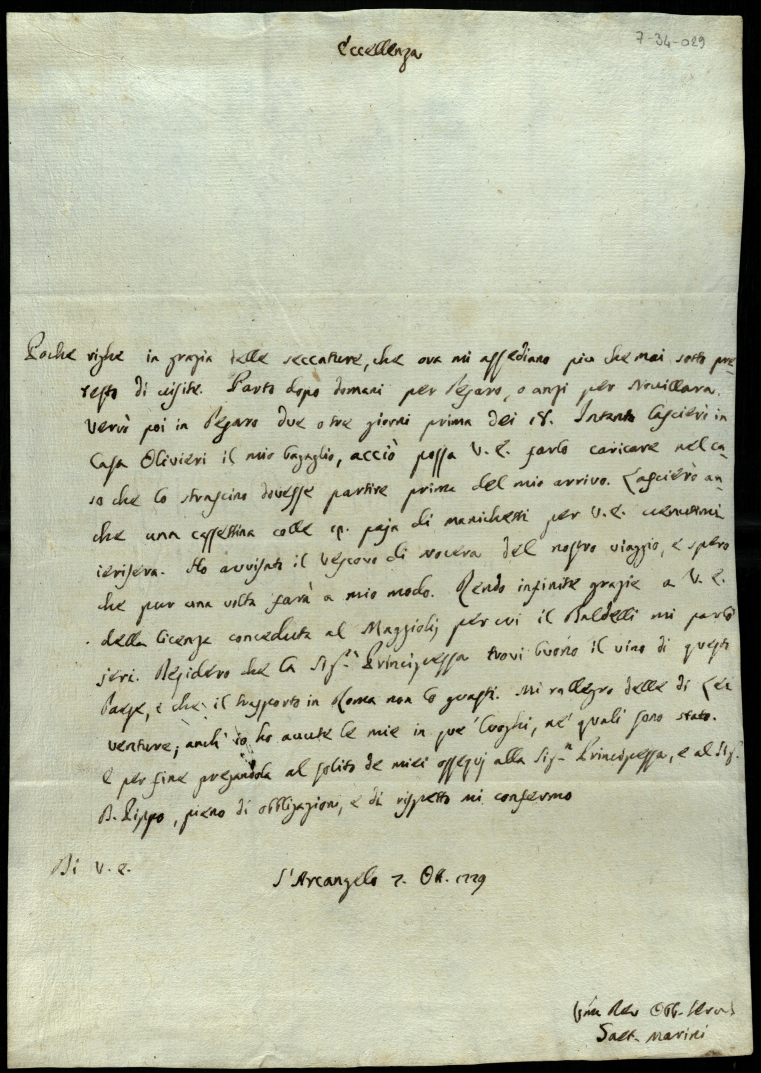 7-34-029
Eccellenza
Poche righe in grazia delle seccature, che ora mi assediano più che mai sotto pre-
testo di visite. Parto dopo domani per Pesaro, o anzi per Novillara.
Verrò poi in Pesaro due o tre giorni prima dei 18. Intanto lascierò in
Casa Olivieri il mio bagaglio, acciò possa V. E. farlo caricare nel ca-
so che lo strascino dovesse partire prima del mio arrivo. Lascierò an-
che una cassettina colle paja di manichetti per V. E. venutimi
ierisera. Ho avvisato il Vescovo di Nocera del nostro viaggio, e spero
che pur una volta farà a mio modo. Rendo infinite grazie a V. E.
della licenza conceduta al Maggioli, per cui il Baldelli mi parlò
jeri. Desidero che la Sig.ª Principessa trovi buono il vino di questo
Paese, e che il trasporto in Roma non lo guasti. Mi rallegro delle di Lei
venture; anch' io ho avute le mie in que' luoghi, ne' quali sono stato.
E per fine pregandola al solito de miei ossequj alla Sig.ª Principessa, e al Sig.
D. Pippo, pieno di obbligazioni, e di rispetto mi confermo
Di V. E.
S. Arcangelo 7. Ott. 1779
Obb. Serv.
Gaet. Marini